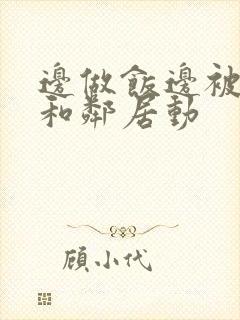 邊做飯邊被
和鄰居動
顧小代